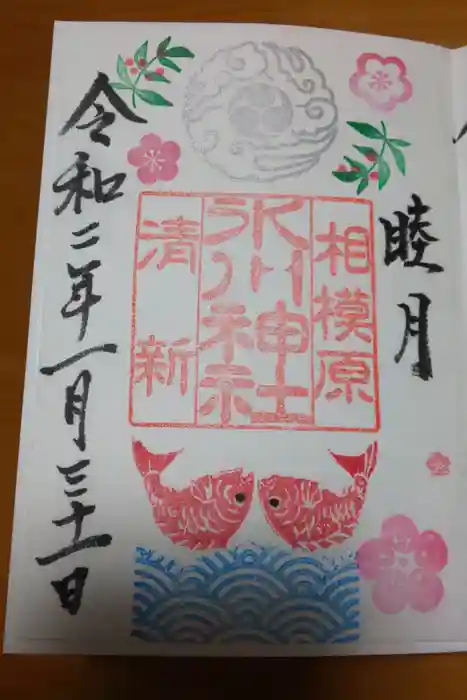 睦月
相模原
氷川神社
清新
令和二年一月三十一日